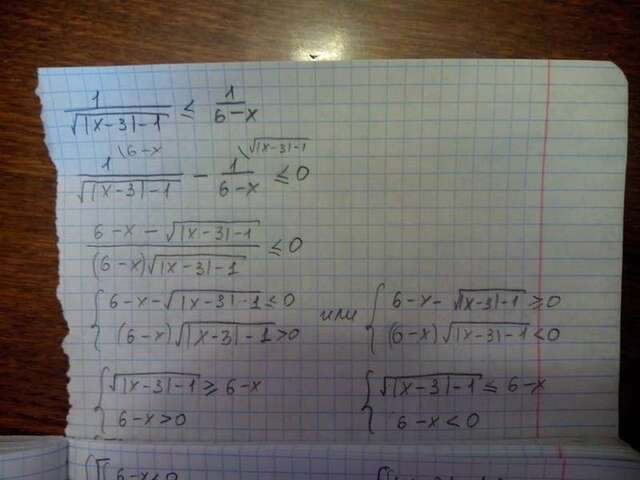 1/√(|x-3|-1) ≤ 1/(6-x)
1\6-x/√(|x-3|-1) - 1\√(|x-3|-1)/(6-x) ≤ 0
(6-x-√(|x-3|-1))/((6-x)√(|x-3|-1)) ≤ 0
{ 6-x-√(|x-3|-1) ≤ 0 или { 6-x-√(|x-3|-1) ≥ 0
(6-x)√(|x-3|-1) > 0 (6-x)√(|x-3|-1) < 0
{ √(|x-3|-1) ≥ 6-x { √(|x-3|-1) ≤ 6-x
6-x > 0 6-x < 0